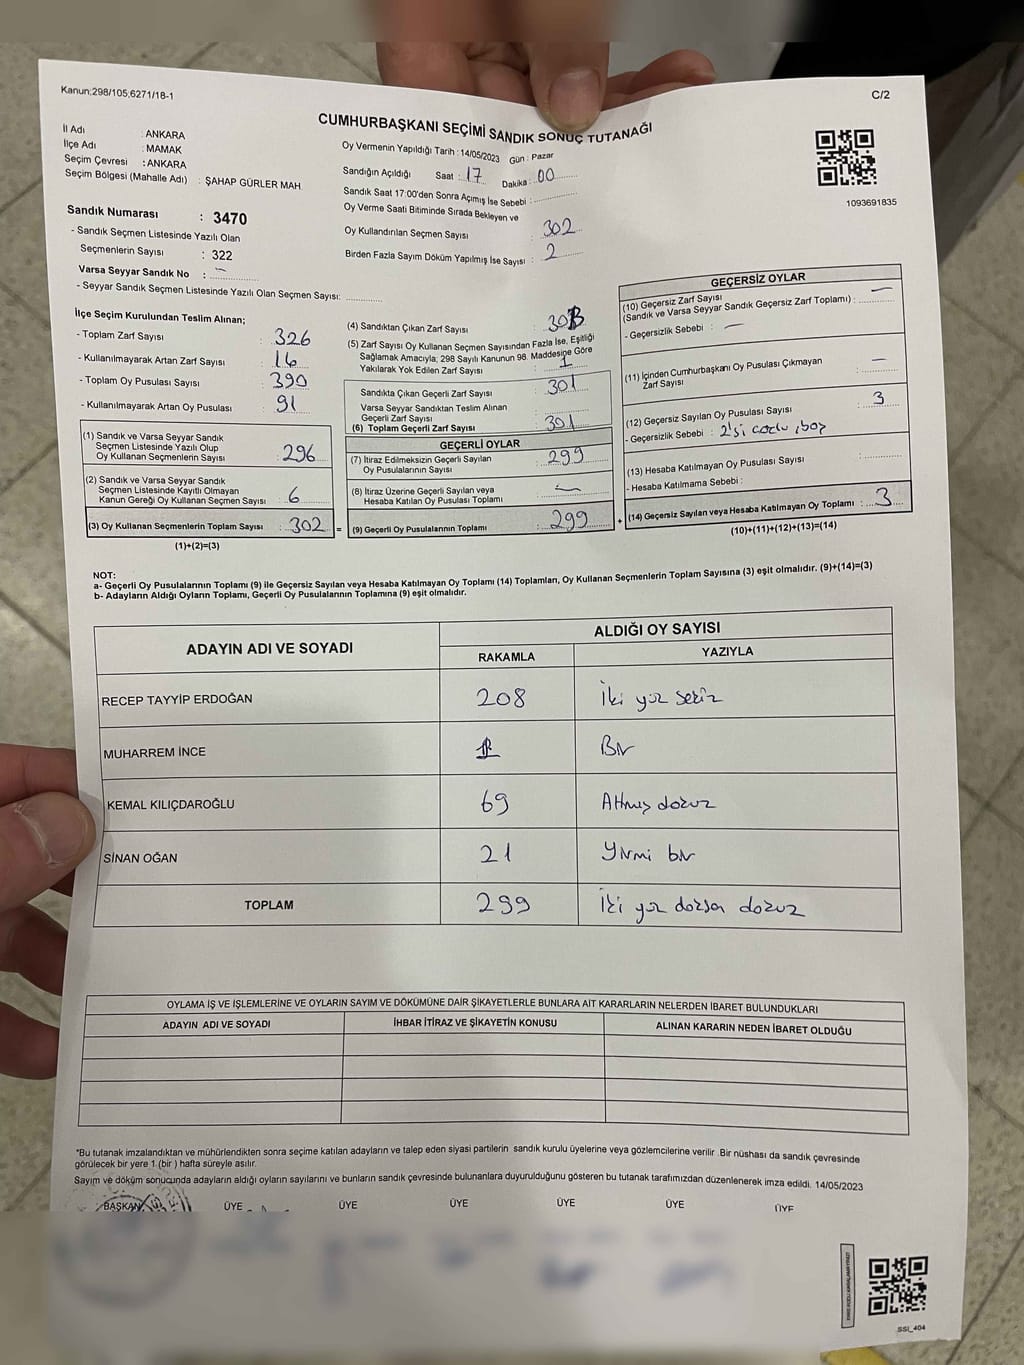 Kanun:298/105;6271/18-1
C/2
CUMHURBAŞKANI SEÇİMİ SANDIK SONUÇ TUTANAĞI
İl Adı : ANKARA
İlçe Adı : MAMAK
Seçim Çevresi : ANKARA
Seçim Bölgesi (Mahalle Adı) : ŞAHAP GÜRLER MAH
Oy Vermenin Yapıldığı Tarih : 14/05/2023 Gün : Pazar
Sandığın Açıldığı Saat : 17 Dakika : 00
Sandık Saat 17:00'den Sonra Açımış İse Sebebi :
Oy Verme Saati Bitiminde Sırada Bekleyen ve
Oy Kullandırılan Seçmen Sayısı : 302
Birden Fazla Sayım Döküm Yapılmış İse Sayısı : 2
1093691835
Sandık Numarası : 3470
- Sandık Seçmen Listesinde Yazılı Olan
Seçmenlerin Sayısı : 322
Varsa Seyyar Sandık No : -
- Seyyar Sandık Seçmen Listesinde Yazılı Olan Seçmen Sayısı:
İlçe Seçim Kurulundan Teslim Alınan;
- Toplam Zarf Sayısı : 326
- Kullanılmayarak Artan Zarf Sayısı : 16
- Toplam Oy Pusulası Sayısı : 390
- Kullanılmayarak Artan Oy Pusulası : 91
(1) Sandık ve Varsa Seyyar Sandık
Seçmen Listesinde Yazılı Olup
Oy Kullanan Seçmenlerin Sayısı : 296
(2) Sandık ve Varsa Seyyar Sandık
Seçmen Listesinde Kayıtlı Olmayan
Kanun Gereği Oy Kullanan Seçmen Sayısı : 6
(3) Oy Kullanan Seçmenlerin Toplam Sayısı : 302 =
(1)+(2)=(3)
(4) Sandıktan Çıkan Zarf Sayısı
(5) Zarf Sayısı Oy Kullanan Seçmen Sayısından Fazla İse, Eşitliği
Sağlamak Amacıyla; 298 Sayılı Kanunun 98. Maddesine Göre
Yakılarak Yok Edilen Zarf Sayısı : 1
Sandıkta Çıkan Geçerli Zarf Sayısı : 301
Varsa Seyyar Sandıktan Teslim Alınan
Geçerli Zarf Sayısı :
(6) Toplam Geçerli Zarf Sayısı : 301
GEÇERLİ OYLAR
(7) İtiraz Edilmeksizin Geçerli Sayılan
Oy Pusulalarının Sayısı : 299
(8) İtiraz Üzerine Geçerli Sayılan veya
Hesaba Katılan Oy Pusulası Toplamı : -
(9) Geçerli Oy Pusulalarının Toplamı : 299 +
GEÇERSİZ OYLAR
(10) Geçersiz Zarf Sayısı
(Sandık ve Varsa Seyyar Sandık Geçersiz Zarf Toplamı) : -
- Geçersizlik Sebebi : -
(11) İçinden Cumhurbaşkanı Oy Pusulası Çıkmayan
Zarf Sayısı : -
(12) Geçersiz Sayılan Oy Pusulası Sayısı : 3
- Geçersizlik Sebebi : 2'si
(13) Hesaba Katılmayan Oy Pusulası Sayısı :
- Hesaba Katılmama Sebebi :
(14) Geçersiz Sayılan veya Hesaba Katılmayan Oy Toplamı : 3
(10)+(11)+(12)+(13)=(14)
NOT:
a- Geçerli Oy Pusulalarının Toplamı (9) ile Geçersiz Sayılan veya Hesaba Katılmayan Oy Toplamı (14) Toplamları, Oy Kullanan Seçmenlerin Toplam Sayısına (3) eşit olmalıdır. (9)+(14)=(3)
b- Adayların Aldığı Oyların Toplamı, Geçerli Oy Pusulalarının Toplamına (9) eşit olmalıdır.
ADAYIN ADI VE SOYADI
ALDIĞI OY SAYISI
RAKAMLA YAZIYLA
RECEP TAYYİP ERDOĞAN 208 İki yüz sekiz
MUHARREM İNCE 1 Bir
KEMAL KILIÇDAROĞLU 69 Altmış dokuz
SİNAN OĞAN 21 Yirmi bir
TOPLAM 299 İki yüz doksan dokuz
OYLAMA İŞ VE İŞLEMLERİNE VE OYLARIN SAYIM VE DÖKÜMÜNE DAİR ŞİKAYETLERLE BUNLARA AİT KARARLARIN NELERDEN İBARET BULUNDUKLARI
ADAYIN ADI VE SOYADI İHBAR İTİRAZ VE ŞİKAYETİN KONUSU ALINAN KARARIN NEDEN İBARET OLDUĞU
*Bu tutanak imzalandıktan ve mühürlendikten sonra seçime katılan adayların ve talep eden siyasi partilerin sandık kurulu üyelerine veya gözlemcilerine verilir .Bir nüshası da sandık çevresinde
görülecek bir yere 1 (bir ) hafta süreyle asılır.
Sayım ve döküm sonucunda adayların aldığı oyların sayılarını ve bunların sandık çevresinde bulunanlara duyurulduğunu gösteren bu tutanak tarafımızdan düzenlenerek imza edildi. 14/05/2023
BAŞKAN ÜYE ÜYE ÜYE ÜYE ÜYE ÜYE
SSI_404